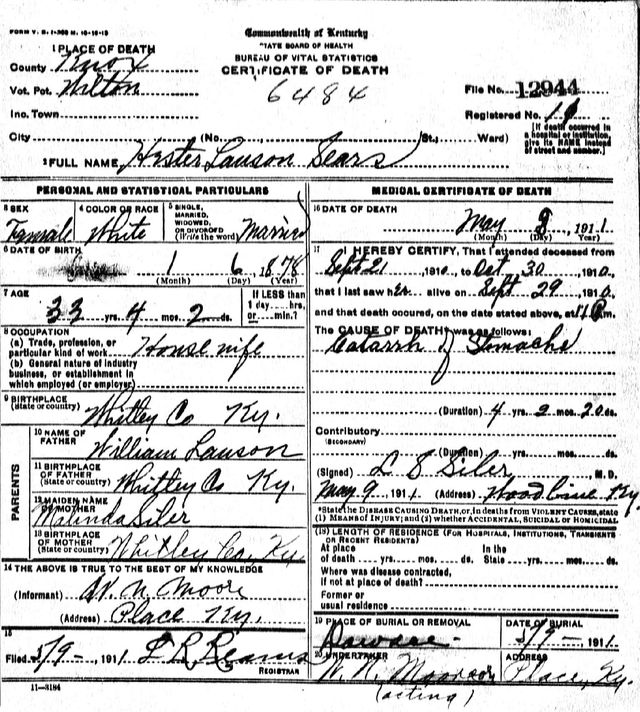 FORM V. S. 1-
Commonwealth of Kentucky
TATE BOARD OF HEALTH
BUREAU OF VITAL STATISTICS
CERTIFICATE OF DEATH
1 PLACE OF DEATH
County Knox
Vot. Pct. Wilton
6484
File No. 12944
Inc. Town
Registered No.
City (No. St.; Ward)
[If death occurred in a hospital or institution, give its NAME instead of street and number.]
2 FULL NAME Hester Lauson Sears
PERSONAL AND STATISTICAL PARTICULARS
3 SEX
Female
4 COLOR OR RACE
White
5 SINGLE, MARRIED, WIDOWED, OR DIVORCED
(Write the word) Married
6 DATE OF BIRTH
1 6 1878
(Month) (Day) (Year)
7 AGE
33 yrs. 4 mos. 2 ds.
If LESS than 1 day....hrs. or.....min.?
8 OCCUPATION
(a) Trade, profession, or particular kind of work House wife
(b) General nature of industry business, or establishment in which employed (or employer)
9 BIRTHPLACE
(State or country) Whitley Co Ky.
PARENTS
10 NAME OF FATHER
William Lauson
11 BIRTHPLACE OF FATHER
(State or country) Whitley Co Ky.
12 MAIDEN NAME OF MOTHER
Malinda Siler
13 BIRTHPLACE OF MOTHER
(State or country) Whitley Co, Ky.
14 THE ABOVE IS TRUE TO THE BEST OF MY KNOWLEDGE
(Informant) W. N. Moore
(Address) Place Ky.
15
Filed 5/9-, 1911 Reams
REGISTRAR
11—3184
MEDICAL CERTIFICATE OF DEATH
16 DATE OF DEATH
May 8, 1911
(Month) (Day) Year)
17 I HEREBY CERTIFY, That I attended deceased from
Sept 21 1910, to Oct 30, 1910,
that I last saw her alive on Sept 29, 1910,
and that death occured, on the date stated above, at
The CAUSE OF DEATH was as follows:
Catarrh of Stomache
(Duration) 4 yrs. 2 mos. 20 ds.
Contributory
(SECONDARY)
(Duration) yrs. mos. ds.
(Signed) L S Siler, M.D.
May 9, 1911 (Address) Woodbine Ky.
*State the DISEASE CAUSING DEATH, or, in deaths from VIOLENT CAUSES, state
(1) MEANS OF INJURY; and (2) whether ACCIDENTAL, SUICIDAL or HOMICIDAL
(18) LENGTH OF RESIDENCE (FOR HOSPITALS, INSTITUTIONS, TRANSIENTS OR RECENT RESIDENTS)
At place of death yrs. mos. ds. In the State yrs. mos. ds.
Where was disease contracted, if not at place of death?
Former or usual residence
19 PLACE OF BURIAL OR REMOVAL
DATE OF BURIAL
5/9-, 1911
20 UNDERTAKER
ADDRESS
Place, Ky.
(acting)